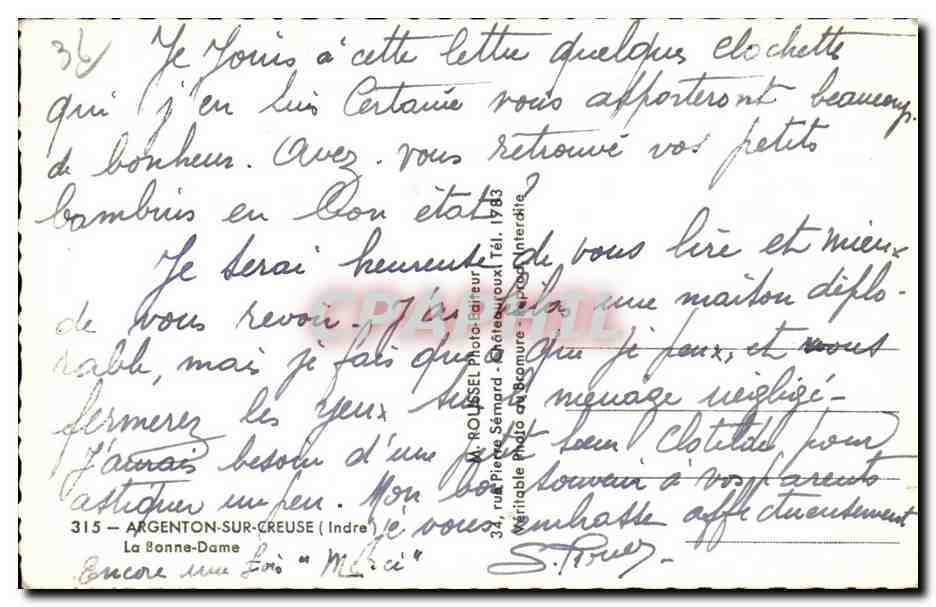 36
Je Joins à cette lettre quelques clochettes
qui j'en suis Certaine vous apporteront beaucoup
de bonheur. Avez-vous retrouvé vos petits
bambins en bon état ?
Je serai heureuse de vous lire et mieux
de vous revoir. J'ai hélas une maison déplo-
rable, mais je fais que je peux, et vous
fermerez les yeux sur le ménage négligé-
J'aurais besoin d'une petit soeur Clotilde pour
astiquer un peu. Mon bon souvenir à vos parents
je vous embrasse affectueusement
Encore une fois "Merci"
315 — ARGENTON-SUR-CREUSE (Indre)
La Bonne-Dame
M. ROUSSEL Photo-Editeur
34, rue Pierre Sémard - Châteauroux Tél. 1783
Véritable Photo au Bromure - Reprod. Interdite
CPARAMA